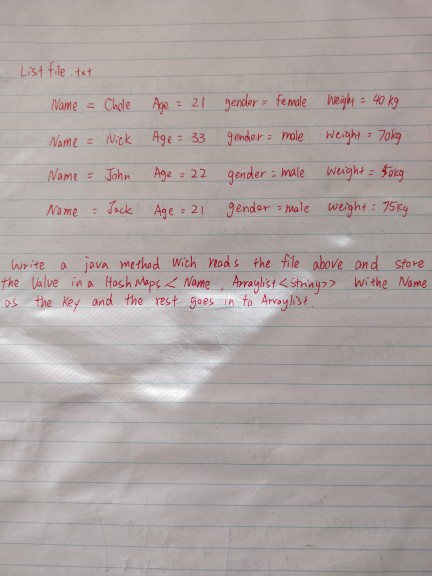 List file.txt
Name = Chole Age = 21 gender = female Weight = 40 kg
Name = Nick Age = 33 gender = male Weight = 70kg
Name = John Age = 22 gender = male Weight = 50kg
Name = Jack Age = 21 gender = male Weight = 75kg
Write a java method Wich reads the file above and store
the Value in a Hash Maps < Name , Arraylist <string>> Withe Name
as the Key and the rest goes in to Arraylist.